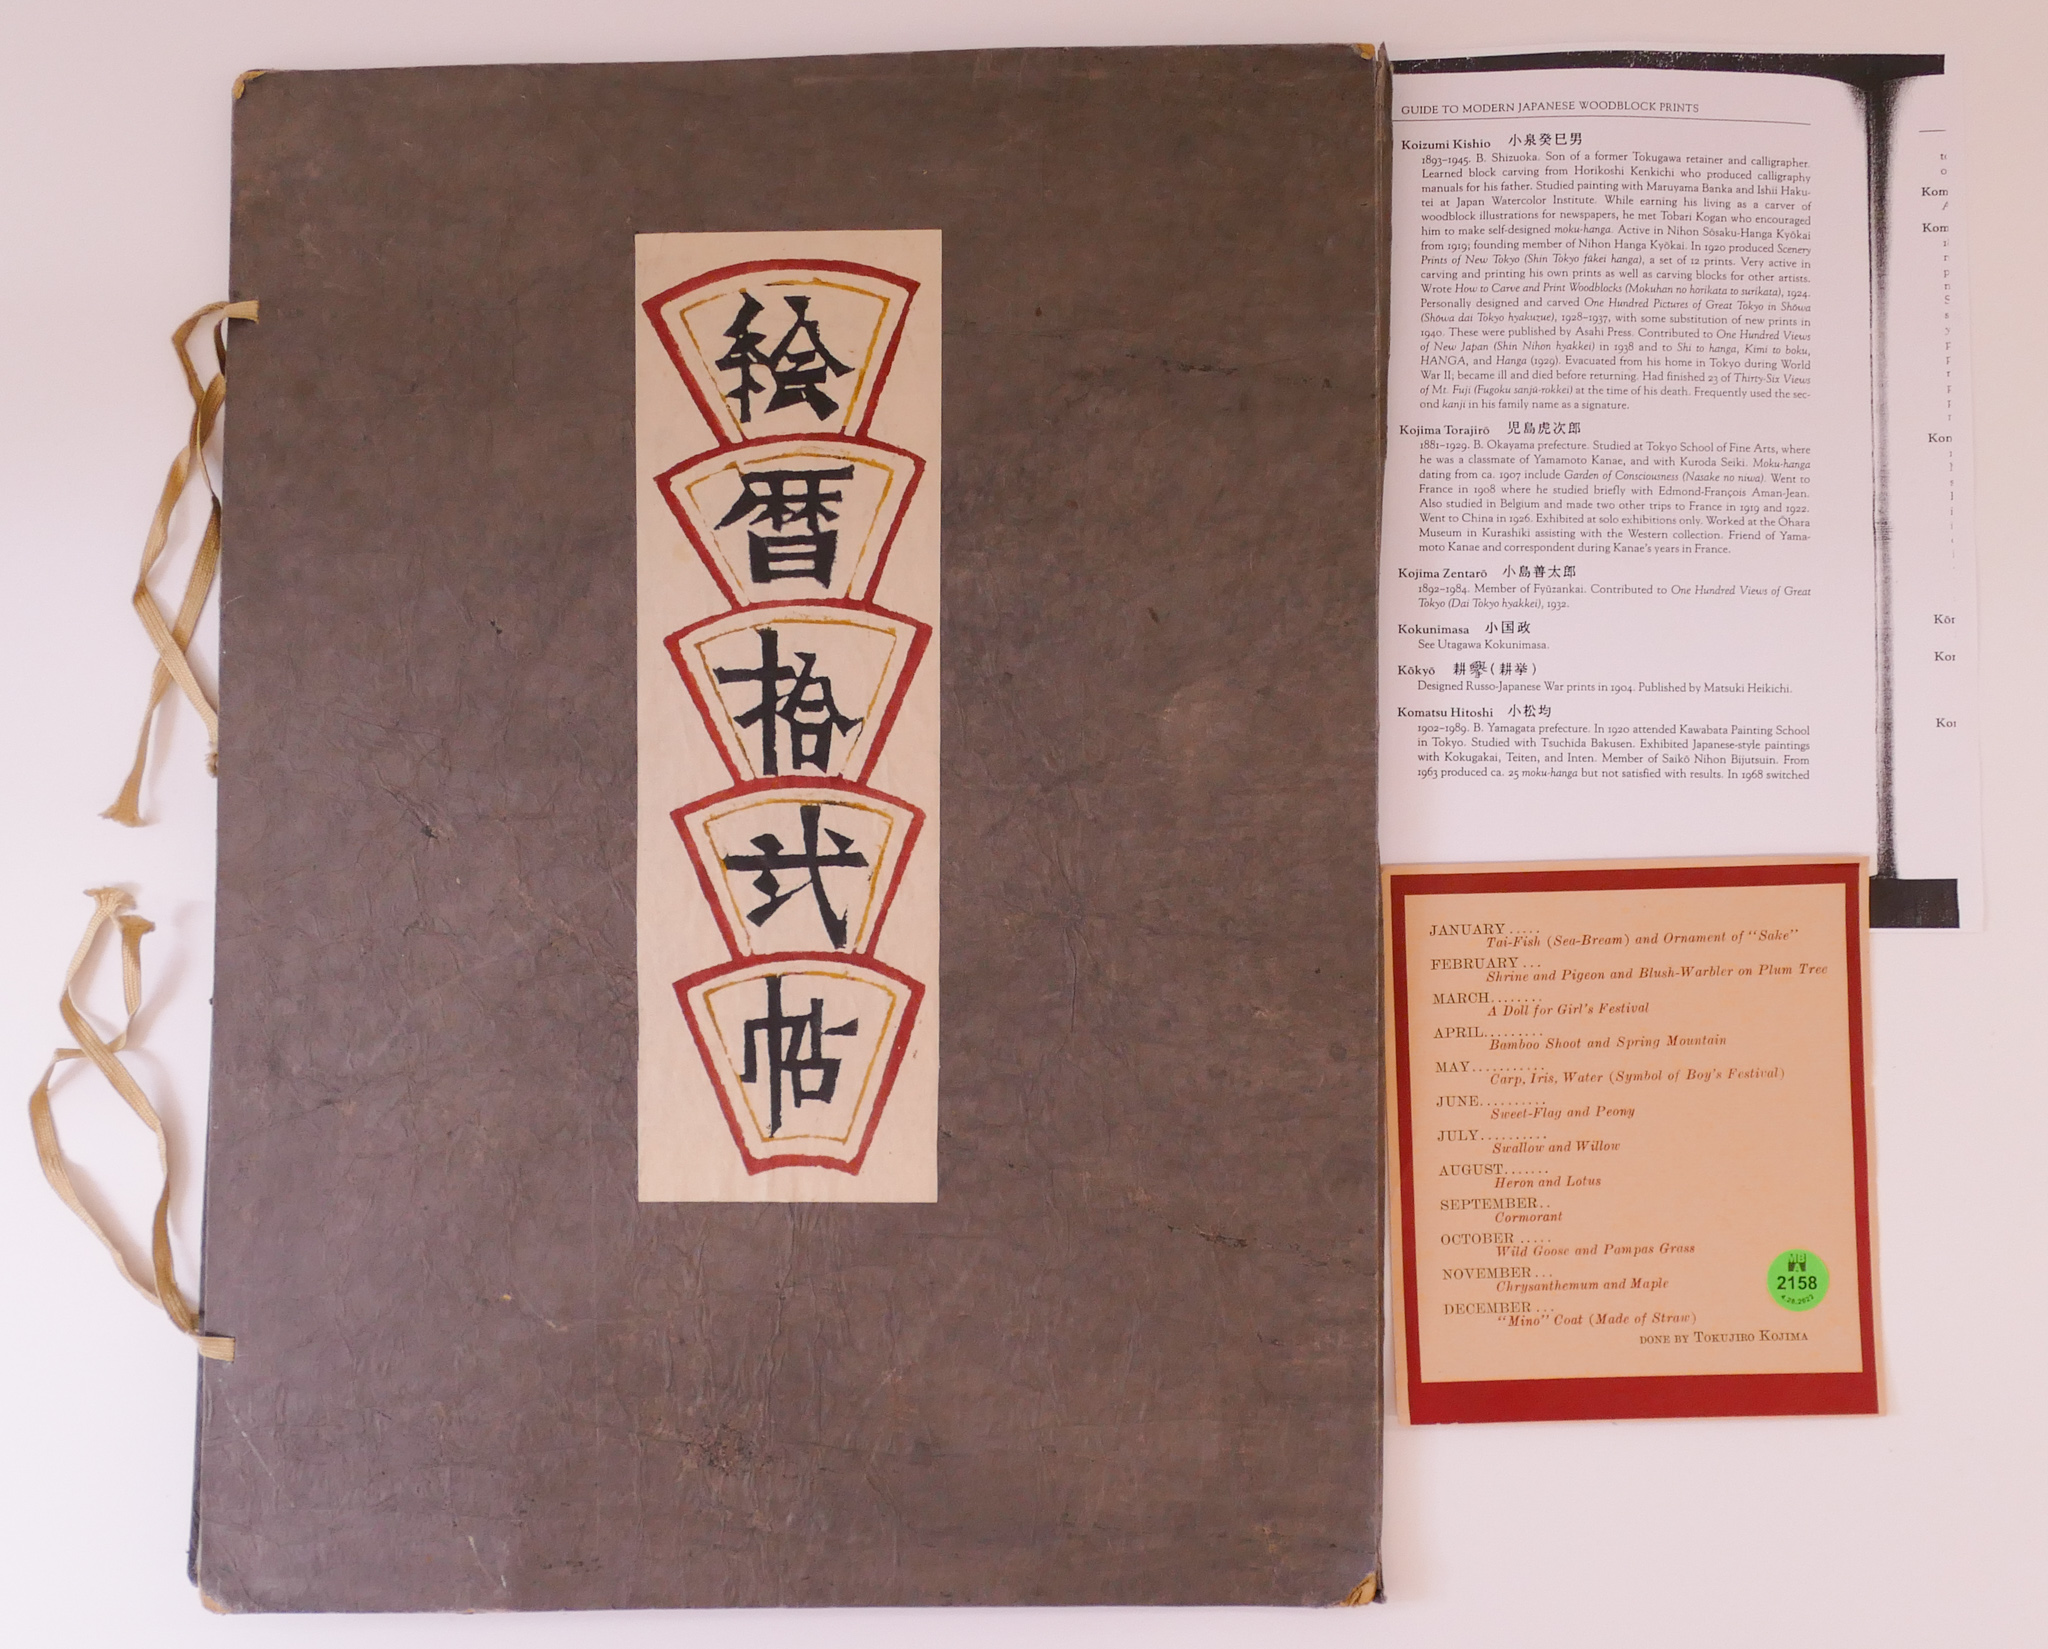 絵
暦
拾
弐
帖
GUIDE TO MODERN JAPANESE WOODBLOCK PRINTS
Koizumi Kishio 小泉癸巳男
1893–1945. B. Shizuoka. Son of a former Tokugawa retainer and calligrapher.
Learned block carving from Horikoshi Kenkichi who produced calligraphy
manuals for his father. Studied painting with Maruyama Banka and Ishii Haku-
tei at Japan Watercolor Institute. While earning his living as a carver of
woodblock illustrations for newspapers, he met Tobari Kogan who encouraged
him to make self-designed moku-hanga. Active in Nihon Sōsaku-Hanga Kyōkai
from 1919; founding member of Nihon Hanga Kyōkai. In 1920 produced Scenery
Prints of New Tokyo (Shin Tokyo fūkei hanga), a set of 12 prints. Very active in
carving and printing his own prints as well as carving blocks for other artists.
Wrote How to Carve and Print Woodblocks (Mokuhan no horikata to surikata), 1924.
Personally designed and carved One Hundred Pictures of Great Tokyo in Shōwa
(Shōwa dai Tokyo hyakuzue), 1928–1937, with some substitution of new prints in
1940. These were published by Asahi Press. Contributed to One Hundred Views
of New Japan (Shin Nihon hyakkei) in 1938 and to Shi to hanga, Kimi to boku,
HANGA, and Hanga (1929). Evacuated from his home in Tokyo during World
War II; became ill and died before returning. Had finished 23 of Thirty-Six Views
of Mt. Fuji (Fugoku sanjū-rokkei) at the time of his death. Frequently used the sec-
ond kanji in his family name as a signature.
Kojima Torajirō 児島虎次郎
1881–1929. B. Okayama prefecture. Studied at Tokyo School of Fine Arts, where
he was a classmate of Yamamoto Kanae, and with Kuroda Seiki. Moku-hanga
dating from ca. 1907 include Garden of Consciousness (Nasake no niwa). Went to
France in 1908 where he studied briefly with Edmond-François Aman-Jean.
Also studied in Belgium and made two other trips to France in 1919 and 1922.
Went to China in 1926. Exhibited at solo exhibitions only. Worked at the Ōhara
Museum in Kurashiki assisting with the Western collection. Friend of Yama-
moto Kanae and correspondent during Kanae's years in France.
Kojima Zentarō 小島善太郎
1892–1984. Member of Fyūzankai. Contributed to One Hundred Views of Great
Tokyo (Dai Tokyo hyakkei), 1932.
Kokunimasa 小国政
See Utagawa Kokunimasa.
Kōkyō 耕擧(耕挙)
Designed Russo-Japanese War prints in 1904. Published by Matsuki Heikichi.
Komatsu Hitoshi 小松均
1902–1989. B. Yamagata prefecture. In 1920 attended Kawabata Painting School
in Tokyo. Studied with Tsuchida Bakusen. Exhibited Japanese-style paintings
with Kokugakai, Teiten, and Inten. Member of Saikō Nihon Bijutsuin. From
1963 produced ca. 25 moku-hanga but not satisfied with results. In 1968 switched
JANUARY.....
Tai-Fish (Sea-Bream) and Ornament of "Sake"
FEBRUARY...
Shrine and Pigeon and Blush-Warbler on Plum Tree
MARCH........
A Doll for Girl's Festival
APRIL.........
Bamboo Shoot and Spring Mountain
MAY...........
Carp, Iris, Water (Symbol of Boy's Festival)
JUNE..........
Sweet-Flag and Peony
JULY..........
Swallow and Willow
AUGUST.......
Heron and Lotus
SEPTEMBER..
Cormorant
OCTOBER .....
Wild Goose and Pampas Grass
NOVEMBER...
Chrysanthemum and Maple
DECEMBER ...
"Mino" Coat (Made of Straw)
DONE BY TOKUJIRO KOJIMA
MB
A
2158